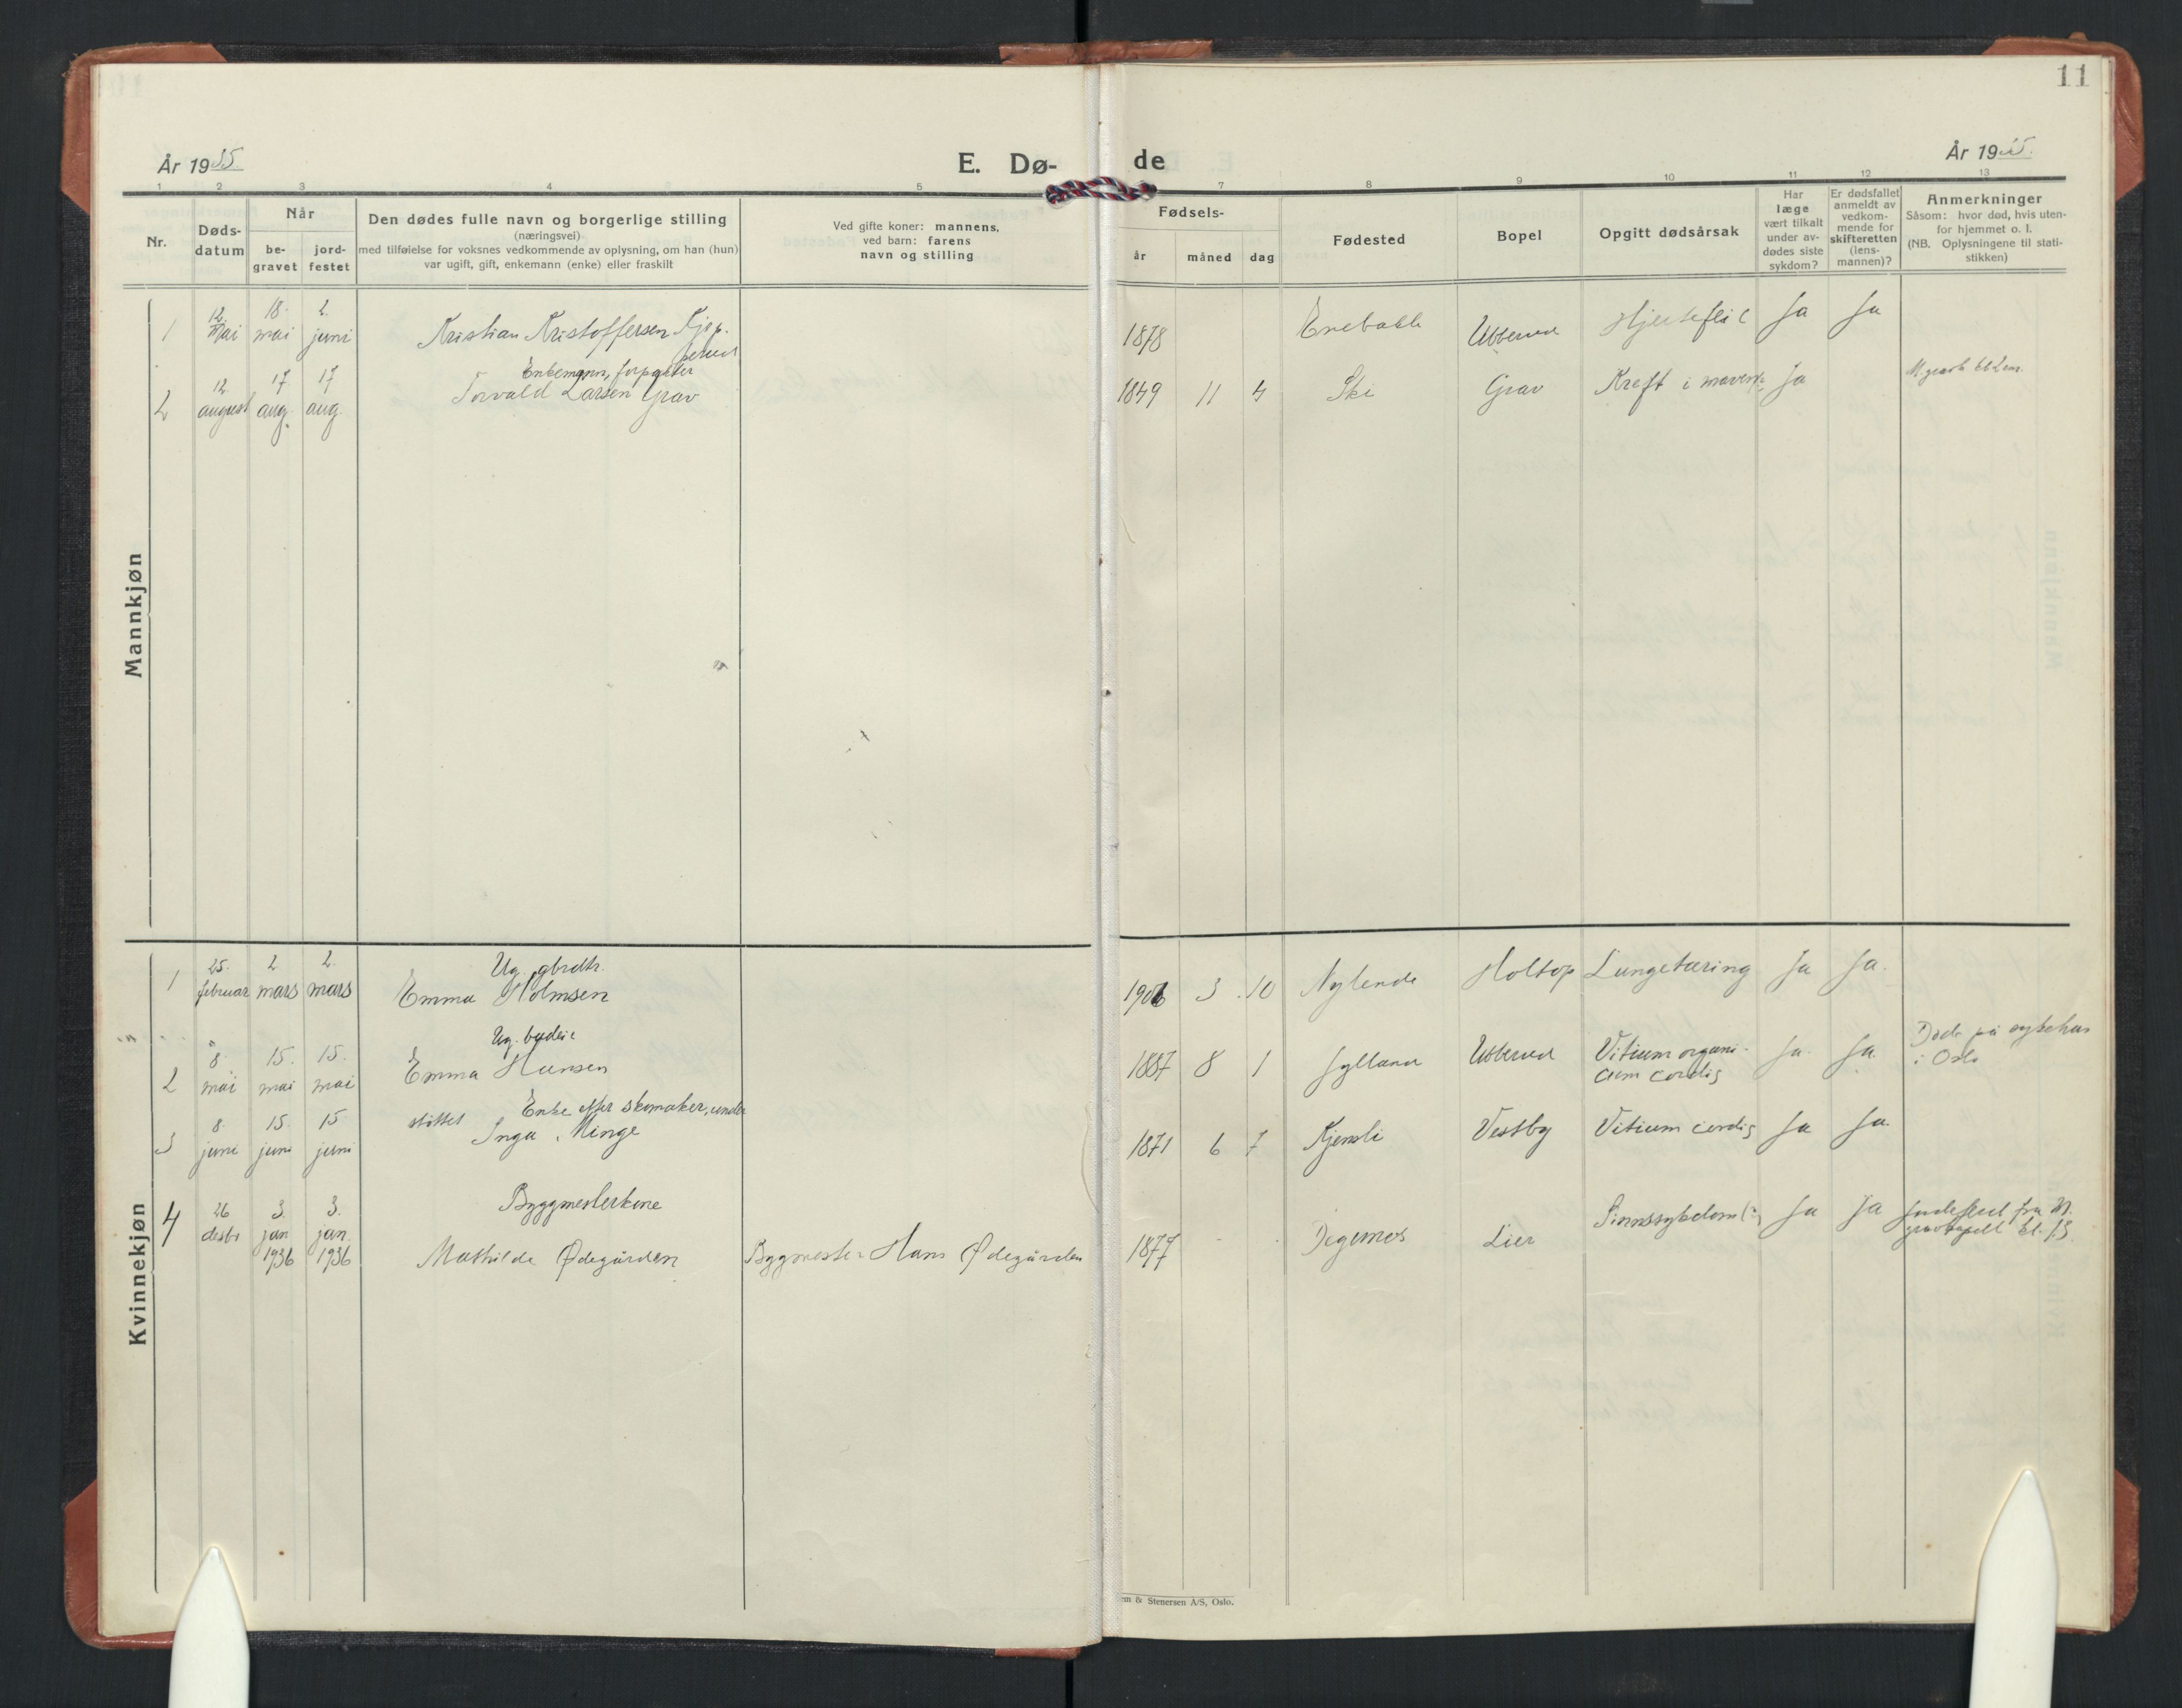 11
År 1935.
E. Dø-
de
År 1935.
1 2 3 4 5
7 8 9 10 11 12 13
Nr.
Døds-
datum
Når
be-
gravet
jord-
festet
Den dødes fulle navn og borgerlige stilling
(næringsvei)
med tilføielse for voksnes vedkommende av oplysning, om han (hun)
var ugift, gift, enkemann (enke) eller fraskilt
Ved gifte koner: mannens,
ved barn: farens
navn og stilling
Fødsels-
år
måned
dag
Fødested
Bopel
Opgitt dødsårsak
Har
læge
vært tilkalt
under av-
dødes siste
sykdom?
Er dødsfallet
anmeldt av
vedkom-
mende for
skifteretten
(lens-
mannen)?
Anmerkninger
Såsom: hvor død, hvis uten-
for hjemmet o. l.
(NB. Oplysningene til stati-
stikken)
Mannkjøn
12. 18. 2.
1 mai mai juni Kristian Kristoffersen 1878 Enebakk Ubberud Hjertefeil Ja Ja
Enkemann, forpakter
12. 17 17
2 august aug. aug. Torvald Larsen Grav 1849 11 4 Ski Grav Kreft i maven Ja
Kvinnekjøn
25. 2. 2. Ug. gbrdtr.
1 februar mars mars Emma Holmsen 1906 3 10 Nylende Holtop Lungetæring Ja Ja.
Ug. budeie
8. 15. 15.
2 mai mai mai Emma Hansen 1887 8 1 Jylland Ubberud Vitium organi-
cum cordis Ja Ja. Død på sykehus
i Oslo
Enke efter skomaker, under
støttet
8. 15. 15
3 juni juni juni Inga Minge 1871 6 7 Kjensli Vestby Vitium cordis Ja Ja.
Byggmesterkone
26 3. 3.
4 desbr jan jan.
1936 1936 Mathilde Ødegården Byggmester Hans Ødegården 1877 Degernes Lier Sinnssykdom Ja Ja Jordfestet fra M.
gravkapell kl. 13.
em & Stenersen A/S, Oslo.